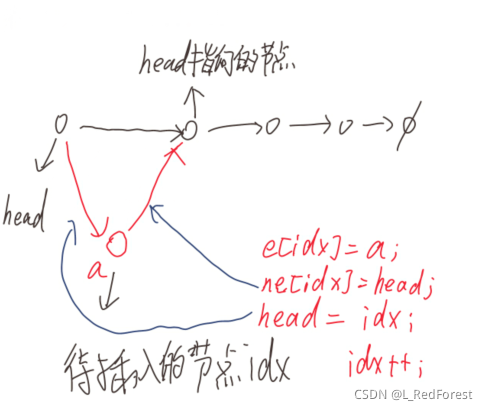 head指向的节点
ø
head
a
e[idx]=a;
ne[idx]=head;
head = idx;
idx++;
待插入的节点idx
CSDN @L_RedForest